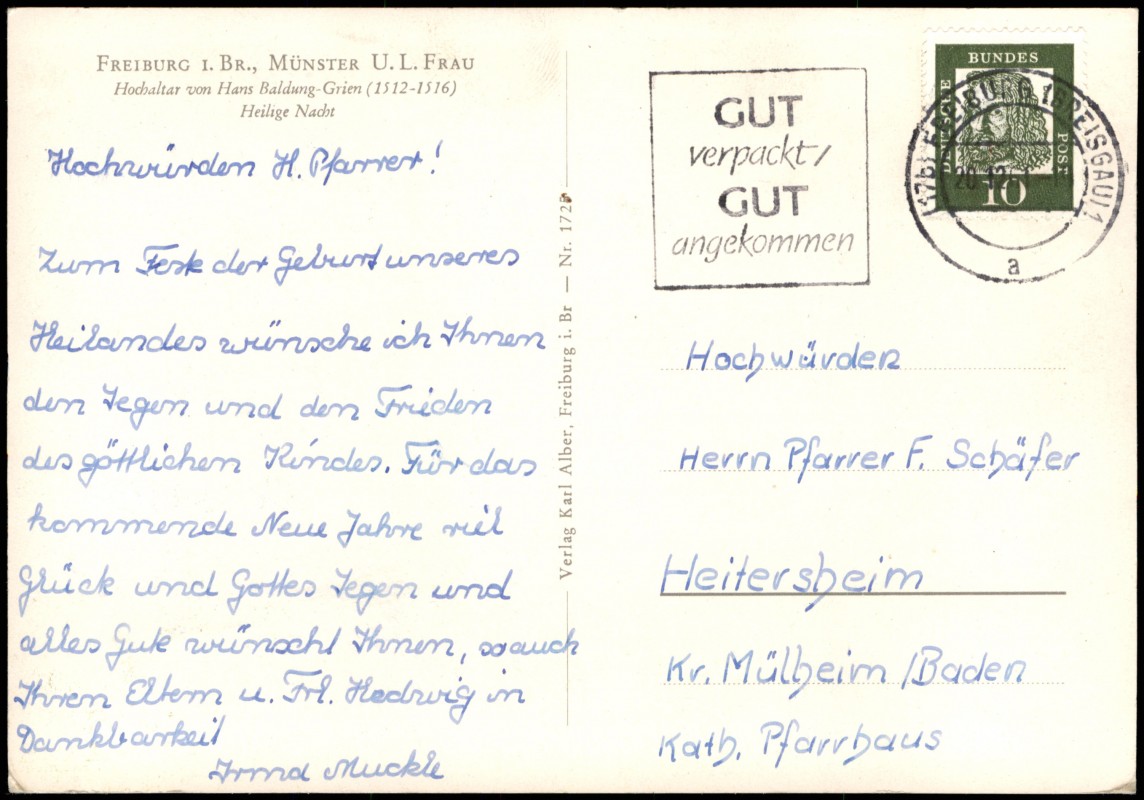 FREIBURG I. BR., MÜNSTER U. L. FRAU
Hochaltar von Hans Baldung-Grien (1512-1516)
Heilige Nacht
Hochwürden H. Pfarrer!
Zum Feste der Geburt unseres
Heilandes wünsche ich Ihnen
den Segen und den Frieden
des göttlichen Kindes. Für das
kommende Neue Jahre viel
Glück und Gottes Segen und
alles Gute wünscht Ihnen, so auch
Ihren Eltern u. Frl. Hedwig in
Dankbarkeit
Irma Muckle
Verlag Karl Alber, Freiburg i. Br — Nr. 172
GUT
verpackt/
GUT
angekommen
DEUTSCHE
BUNDES
POST
10
FREIBURG BREISGAU 1
20.12.
a
Hochwürden
Herrn Pfarrer F. Schäfer
Heitersheim
Kr. Mülheim /Baden
Kath. Pfarrhaus